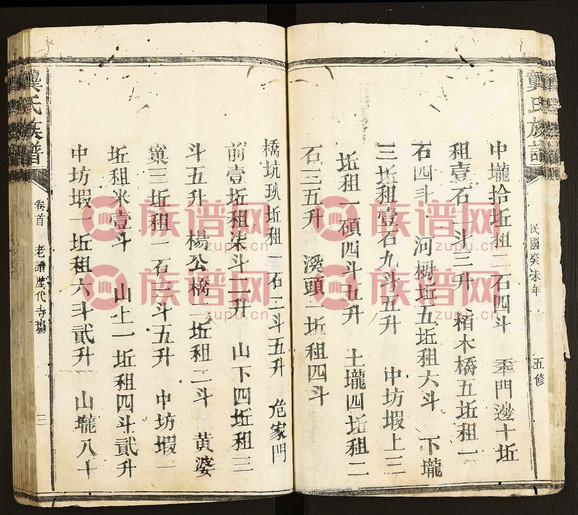 龔氏族譜
民國癸未年
五修
中壠拾坵租二石四斗 垂門邊十坵
租壹石 斗三升 栢木橋五坵租一
石四斗 河樹坵五坵租六斗 下壠
三坵租壹石九斗五升 中坊塅上三
坵租一碩四斗五升 土壠四坵租二
石三五升 溪頭一坵租四斗
橋坑 坵租一石二斗五升 危家門
前壹坵租柒斗二升 山下四坵租三
斗五升 楊公橋一坵租二斗 黄婆
窠三坵租一石三斗五升 中坊塅一
坵租米壹斗 山上一坵租四斗貳升
中坊塅一坵租六斗貳升 山壠八十
龔氏族譜
卷首
老譜歷代
三
族谱网
zupu.cn
族谱网
zupu.cn
族谱网
zupu.cn
族谱网
zupu.cn